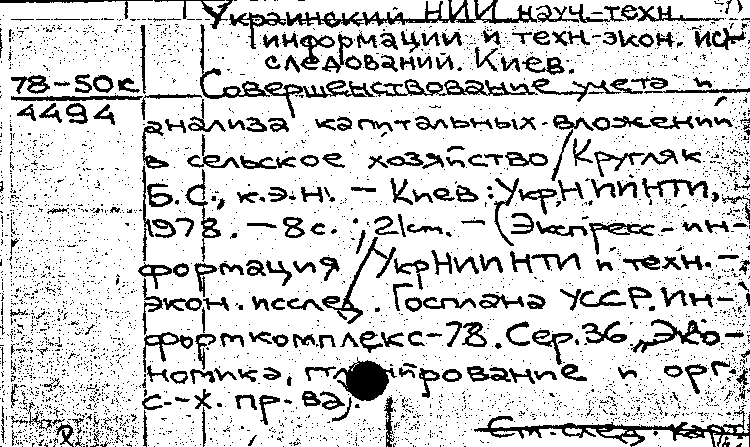 Украинский НИИ науч.-техн.
информации и техн.-экон. ис-
следований. Киев.
78-50к
4494
Совершенствование учета и
анализа капитальных вложений
в сельское хозяйство / Кругляк
Б.С., к.э.н. — Киев: УкрНИИНТИ,
1978. — 8с.; 21см. — (Экспресс-ин-
формация / УкрНИИНТИ и техн.-
экон. исслед. Госплана УССР. Ин-
формкомплекс-78. Сер. 36, „Эко-
номика, планирование и орг.
с.-х. пр-ва).
См. след. карт.